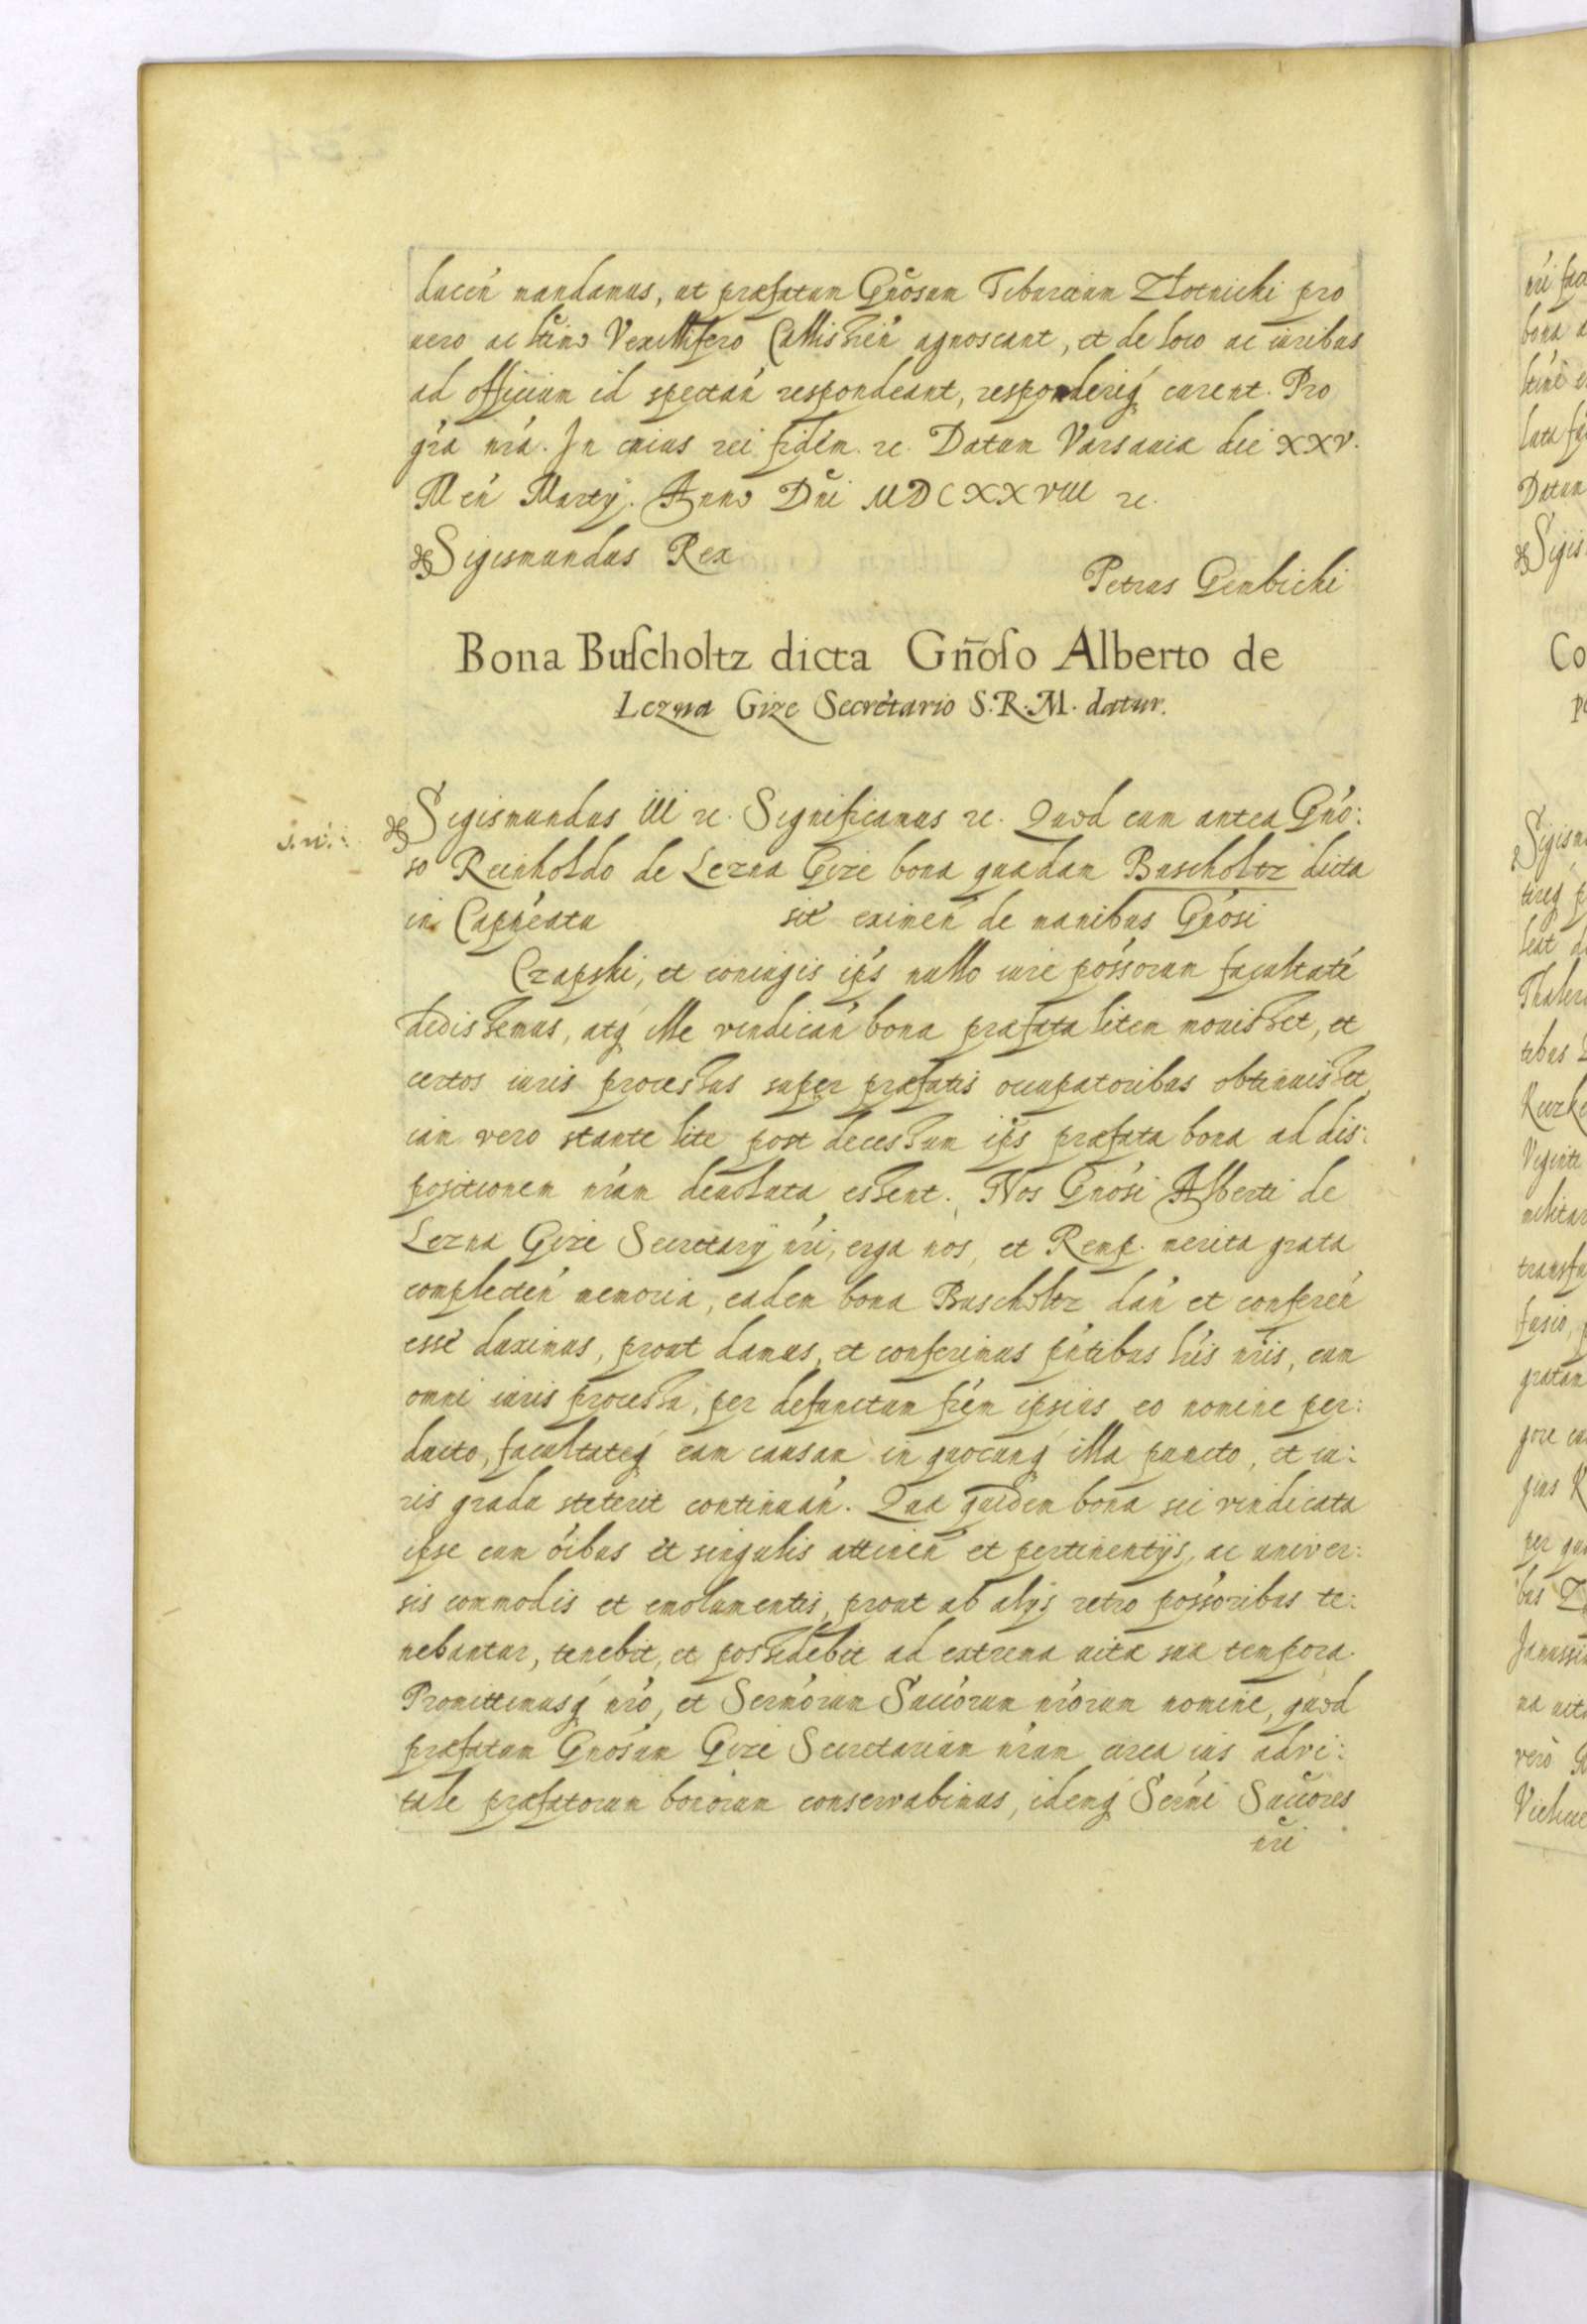 ducen mandamus, ut præfatum Gnosum Tiburtium Złotnicki pro
uero ac ltimo Vexillifero Callissien agnoscant, et de loco ac iuribus
ad officium id spectan respondeant, responderiq curent. Pro
gra nra. In cuius rei fidem. rc. Datum Varsauiæ die XXV.
Men Martij. Anno Dni MDCXXVIII rc.
Sigismundus Rex
Petrus Gembicki
Bona Buscholtz dicta Gnoso Alberto de
Lezna Gize Secretario S.R.M. datur.
Sigismundus III rc. Significamus rc. Quod cum antea Gno:
so Reinholdo de Lezna Gize bona quædam Buscholtz dicta
in Capneatu sit eximen de manibus Gnosi
Czapski, et coniugis ips nullo iure possorum facultate
dedissemus, atq ille vindican bona præfata litem mouisset, et
certos iuris processus super præfatis occupatoribus obtinuisset
iam vero stante lite post decessum ips præfata bona ad dis:
positionem nram deuoluta essent. Nos Gnosi Alberti de
Lezna Gize Secretarij nri, erga nos, et Remp. merita grata
complecten memoria, eadem bona Buscholtz dan et conferen
esse duximus, prout damus, et conferimus pntibus lris nris, cum
omni iuris processu, per defunctum frem ipsius eo nomine per:
ducto, facultateq eam causam in quocunq illa puncto, et iu:
ris gradu steterit continuan. Quæ quidem bona sci vindicata
ipse cum oibus et singulis attinen et pertinentijs, ac univer:
sis commodis et emolumentis, prout ab alijs retro possoribus te:
nebantur, tenebit, et possidebit ad extrema uitæ suæ tempora.
Promittimusq nro, et Sermorum Succorum nrorum nomine, quod
præfatum Gnosum Gize Secretarium nrum circa ius advi:
tale præfatorum bonorum conservabimus, idemq Sermi Succores
nri